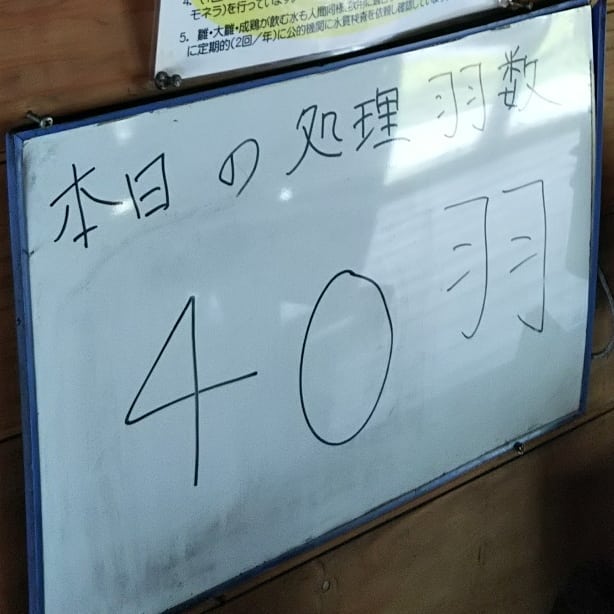 モネラ)を行っています。
5. 雛・大雛・成鶏が飲む水も人間同様、
に定期的(2回/年)に公的機関に水質検査を依頼し確認しています
本日の処理羽数
40羽